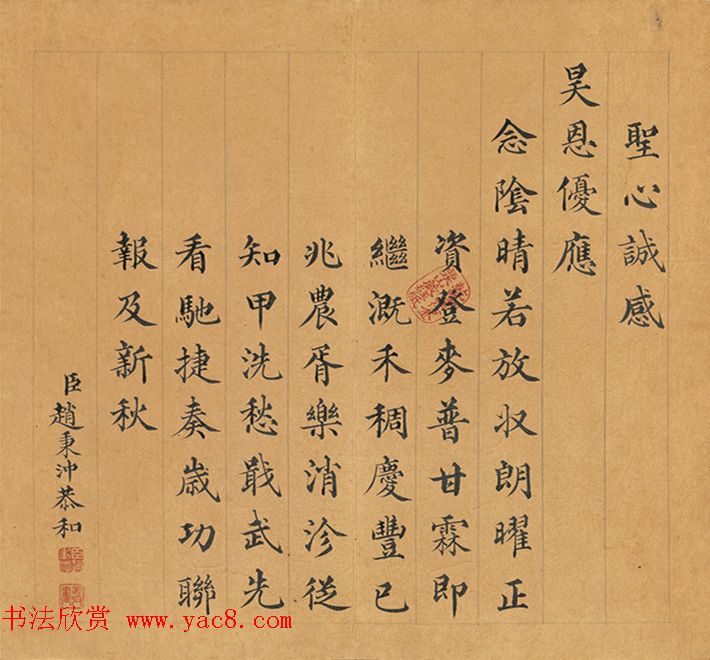 聖心誠感
昊恩優應
念陰晴若放収朗曜正
資登麥普甘霖即
繼溉禾稠慶豐已
兆農胥樂消沴従
知甲洗愁戢武先
看馳捷奏歲功聯
報及新秋
臣趙秉沖恭和
书法欣赏 www.yac8.com